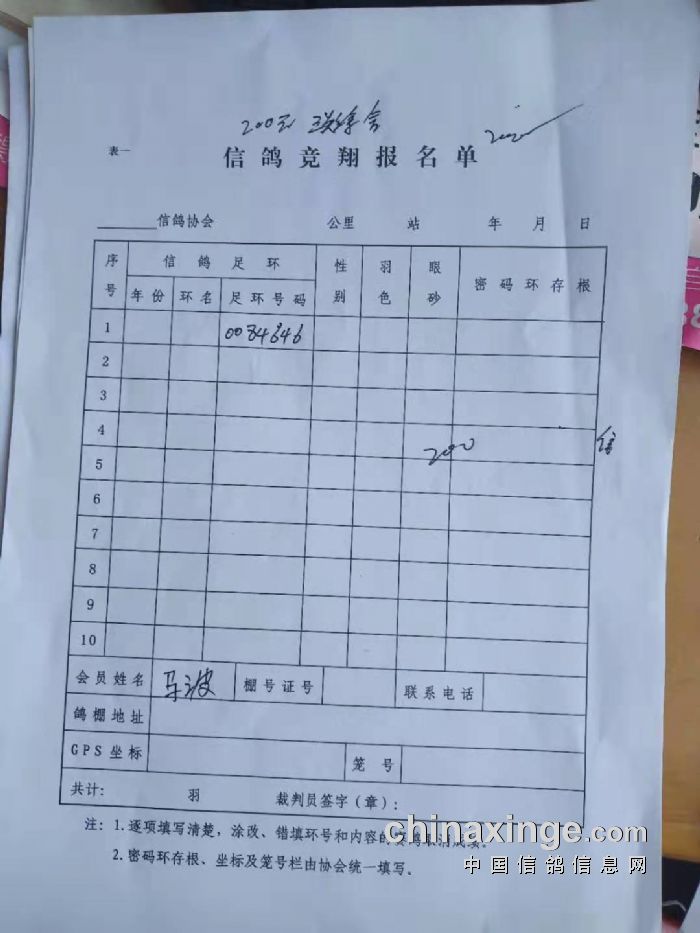 200元
2000
表一
信鸽竞翔报名单
信鸽协会 公里 站 年 月 日
序号 信鸽足环 性别 羽色 眼砂 密码环存根
年份 环名 足环号码
1 0084646
2
3
4
200
5
6
7
8
9
10
会员姓名 马波 棚号证号 联系电话
鸽棚地址
GPS坐标 笼号
共计: 羽 裁判员签字(章):
注: 1.逐项填写清楚,涂改、错填环号和内容的
2.密码环存根、坐标及笼号栏由协会统一填写。
chinaxinge.com
中国信鸽信息网